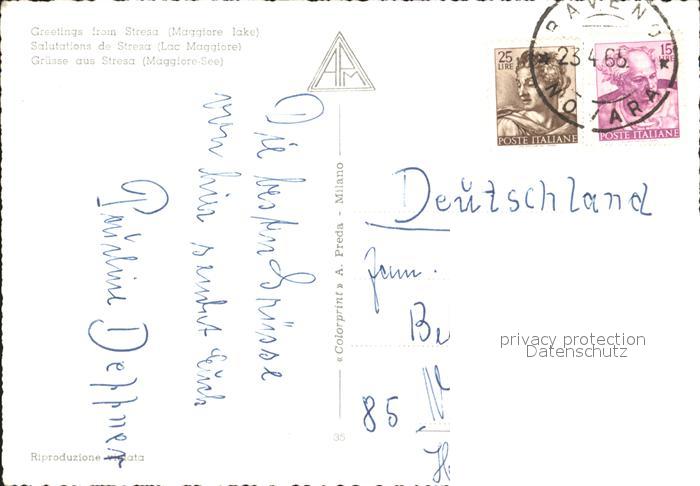 Greetings from Stresa (Maggiore lake)
Salutations de Stresa (Lac Maggiore)
Grüsse aus Stresa (Maggiore-See)
25
LIRE
POSTE ITALIANE
15
LIRE
POSTE ITALIANE
BAVENO
23.4.66
NOVARA
Die besten Grüsse
von hier sendet Euch
Pauline Deppner
«Colorprint» A. Preda - Milano
35
Riproduzione vietata
Deutschland
Fam.
Be
85 N
privacy protection
Datenschutz